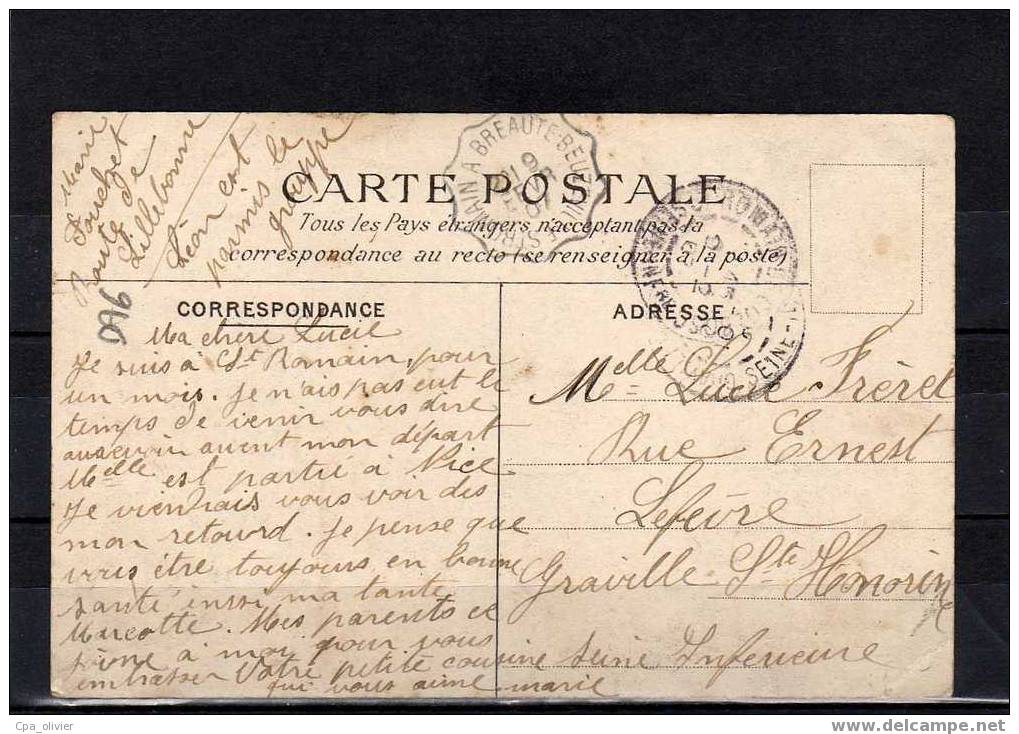 Marie
Fouchet
Route de
Lillebonne
Léon est
parmis le
gruppe
CARTE POSTALE
Tous les Pays étrangers n'acceptant pas la
correspondance au recto (se renseigner à la poste)
A BREAUTE-BEUZEVILLE
CORRESPONDANCE
ADRESSE
096
Ma chère Lucie
Je suis à St Romain, pour
un mois. Je n'ais pas eut le
temps de venir vous dire
auxevoir avent mon départ
Melle est partie à Nice
Je viendrais vous voir dès
mon retourd. Je pense que
vous être toujours en bonne
santé inssi ma tante
Marcotte. Mes parents ce
joine à moi pour vous
embrasser Votre petite cousine
qui vous aime marie
Melle Lucie Frèret
Rue Ernest
Lefèvre
Graville Ste Honorine
Seine Inferieure
Cpa_olivier
www.delcampe.net